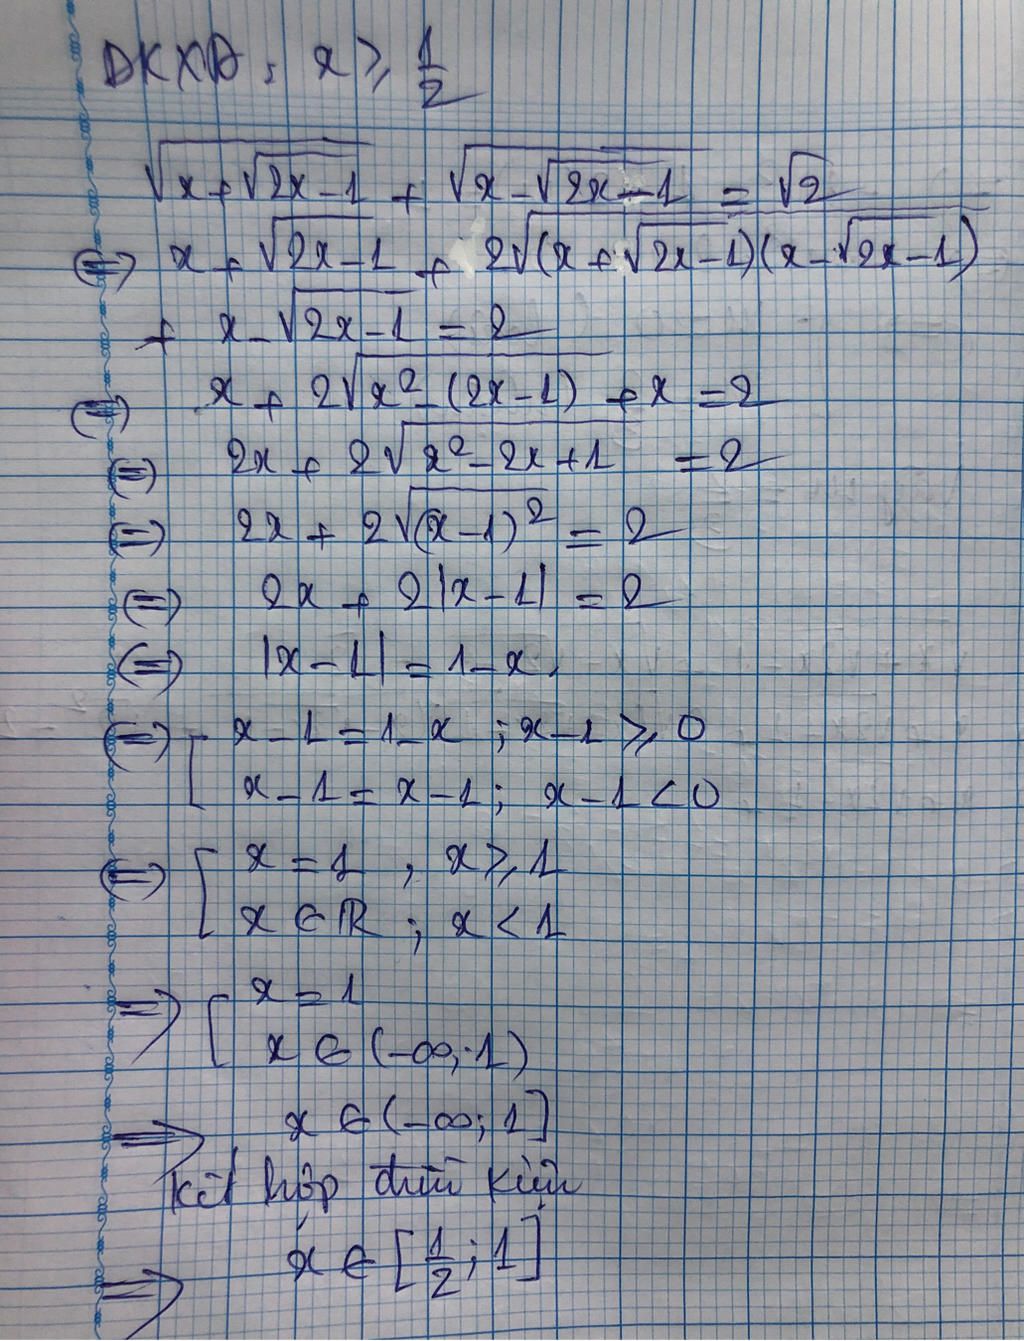 ĐKXĐ: x ≥ 1/2
√(x + √(2x-1)) + √(x - √(2x-1)) = √2
⇔ x + √(2x-1) + 2√((x + √(2x-1))(x - √(2x-1)))
+ x - √(2x-1) = 2
⇔ x + 2√(x² - (2x-1)) + x = 2
⇔ 2x + 2√(x² - 2x + 1) = 2
⇔ 2x + 2√((x-1)²) = 2
⇔ 2x + 2|x-1| = 2
⇔ |x-1| = 1-x.
⇔ [ x-1 = 1-x ; x-1 ≥ 0
x-1 = x-1 ; x-1 < 0
⇔ [ x = 1 , x ≥ 1
x ∈ ℝ ; x < 1
⇒ [ x = 1
x ∈ (-∞; 1)
⇒ x ∈ (-∞; 1]
kết hợp điều kiện
⇒ x ∈ [1/2; 1]